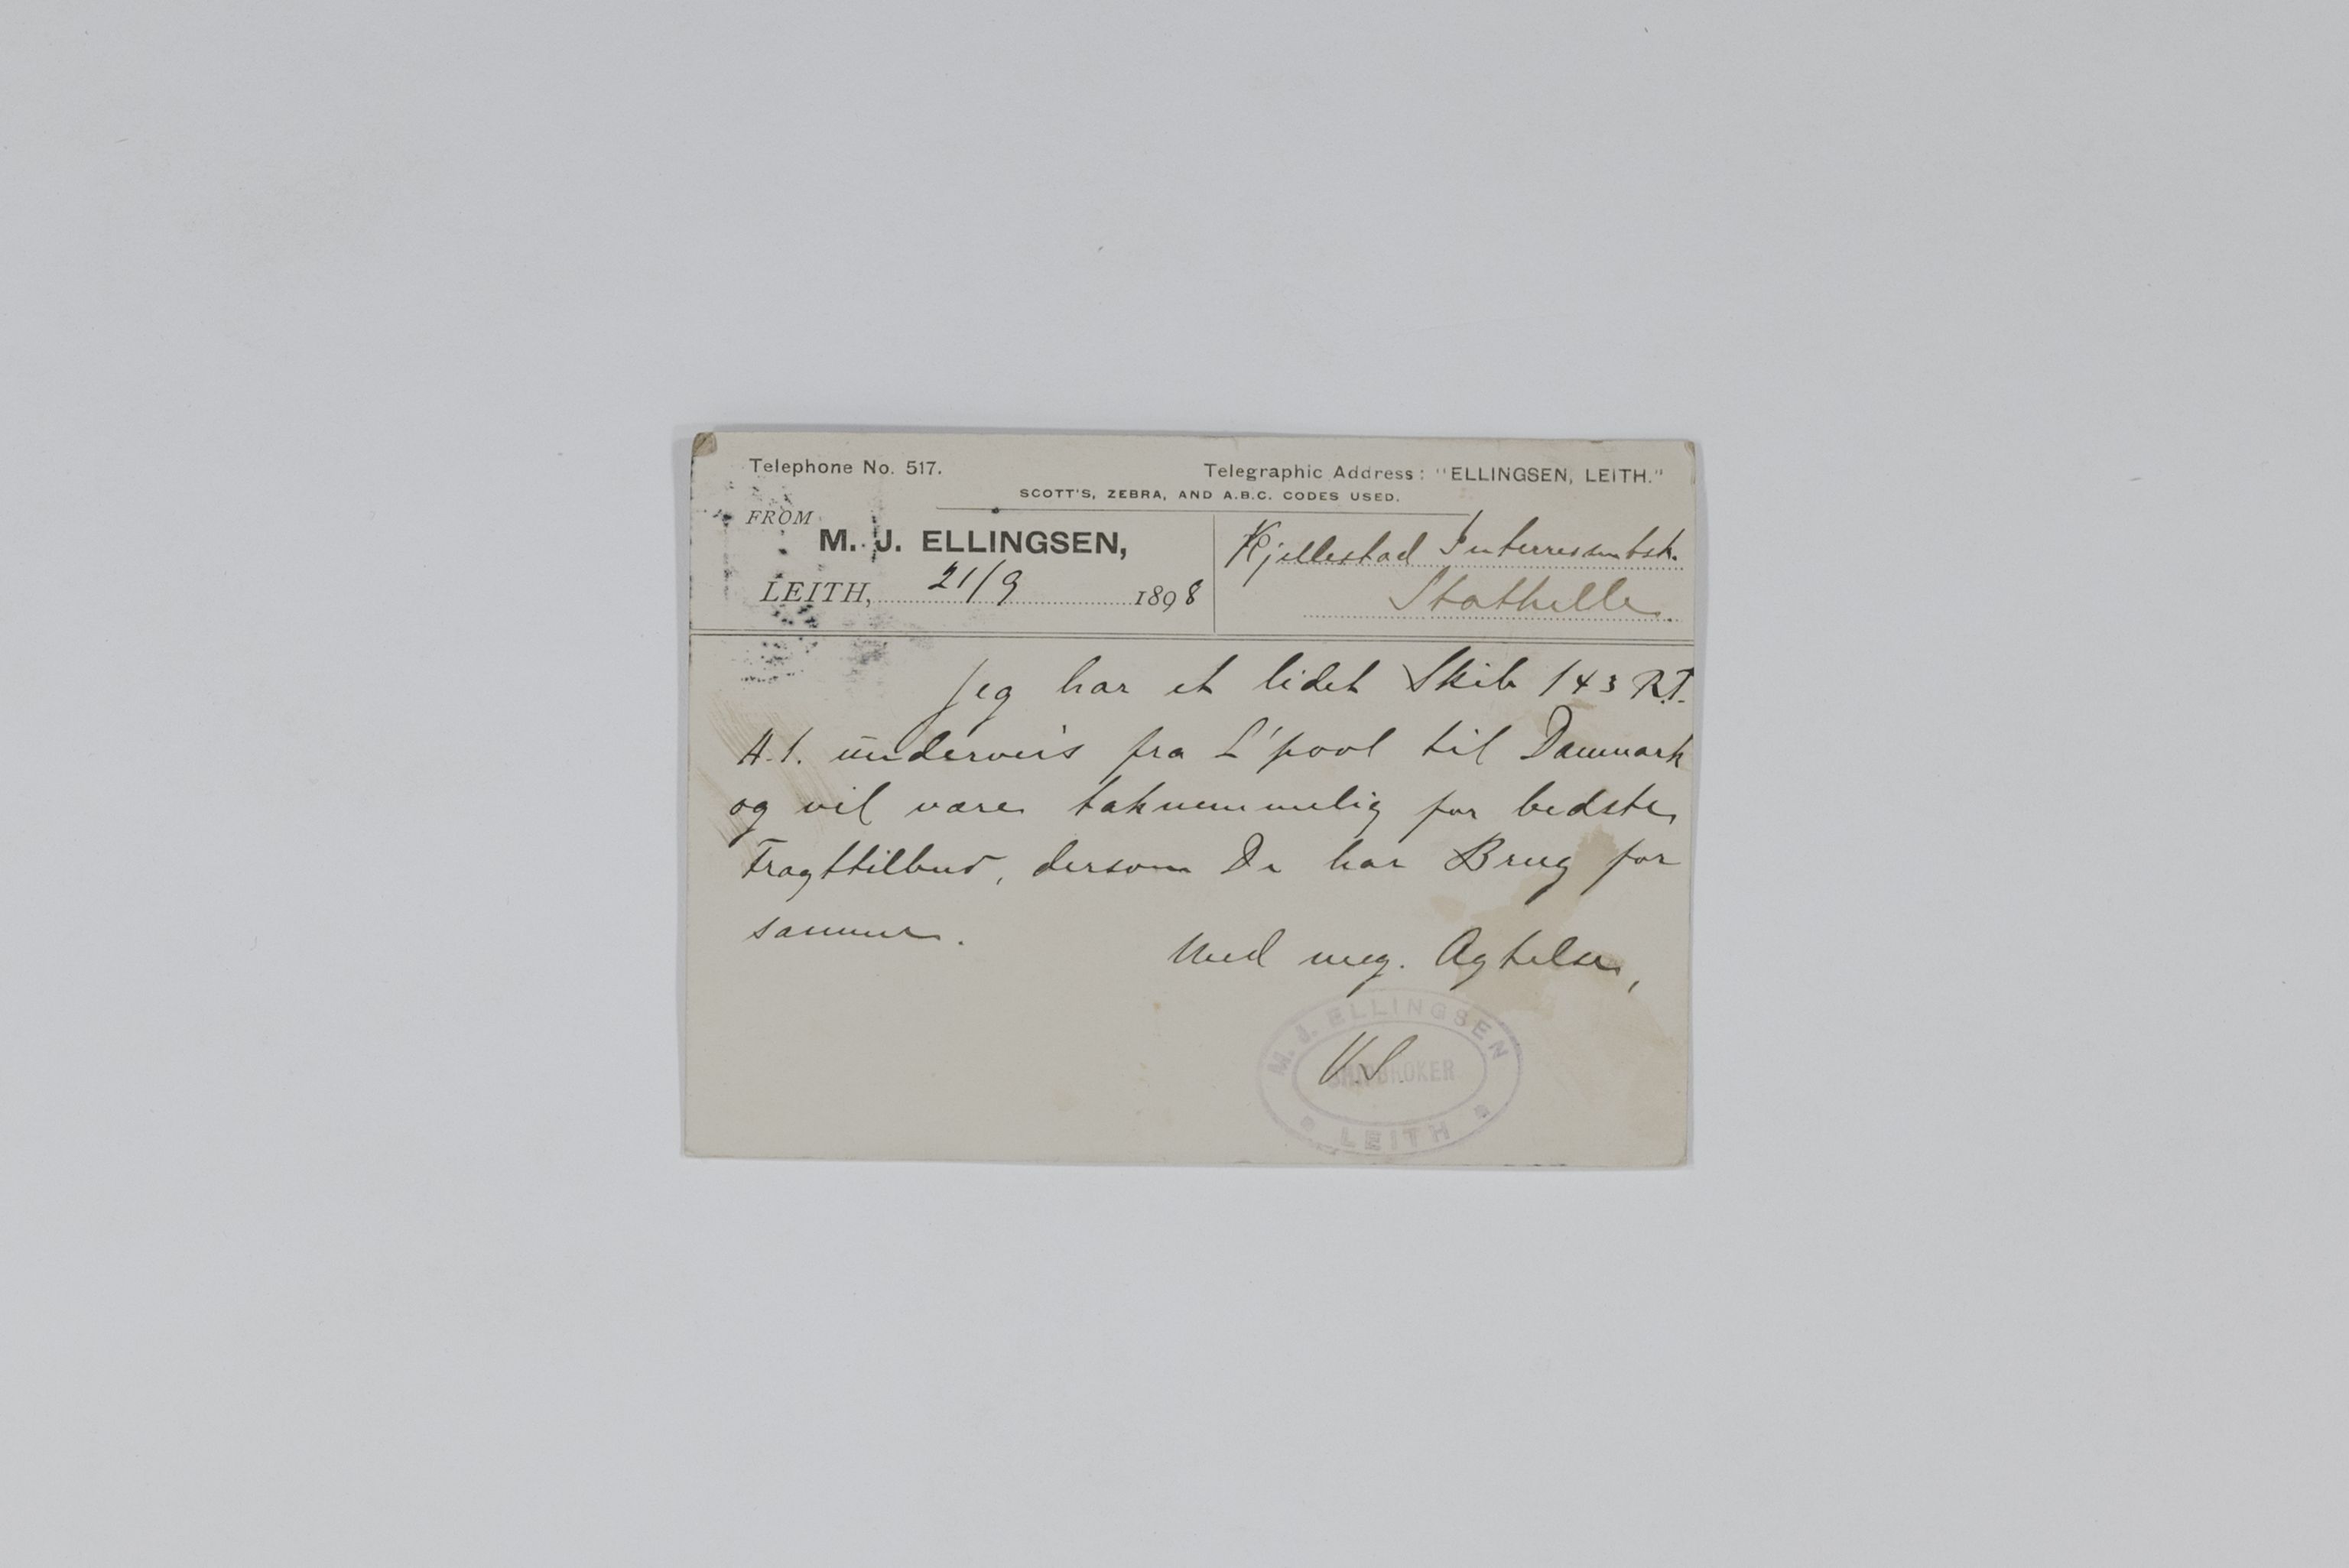 Telephone No. 517.
Telegraphic Address: "ELLINGSEN, LEITH."
SCOTT'S, ZEBRA, AND A.B.C. CODES USED.
FROM
M. J. ELLINGSEN,
LEITH, 21/9 1898
Kjellestad Interressentsk.
Stathelle
Jeg har et lidet Skib 143 R.T.
A.1. underveis fra L'pool til Danmark
og vil være taknemmelig for bedste
Fragttilbud, dersom De har Brug for
samme.
Med meg. Agtelse,
M. J. ELLINGSEN
SHIPBROKER
LEITH